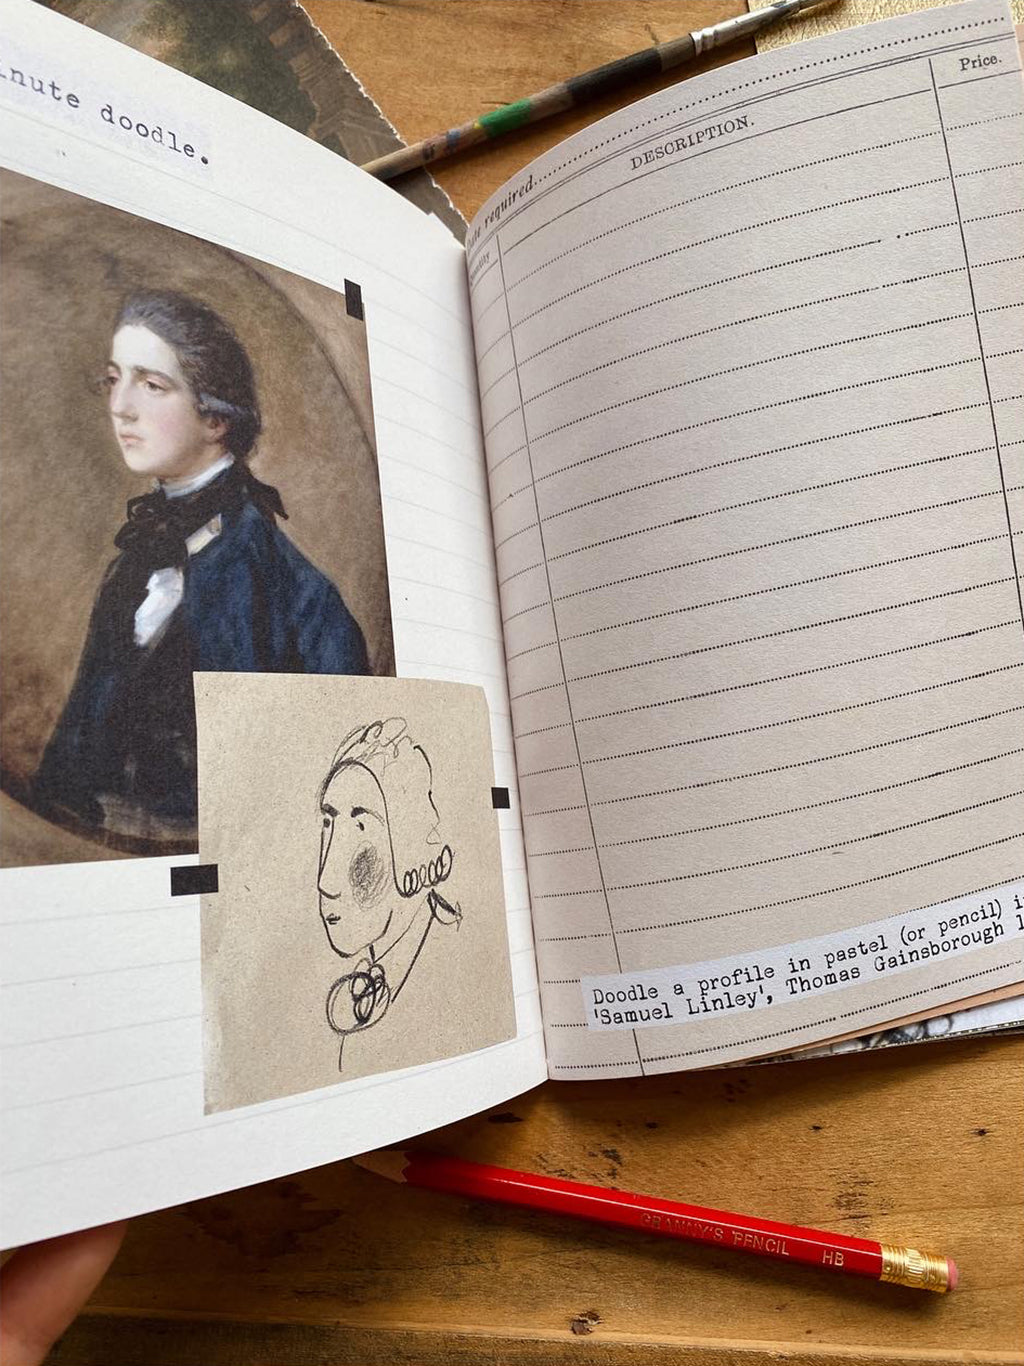 doodle.
required
DESCRIPTION.
Price.
Doodle a profile in pastel (or pencil)
'Samuel Linley', Thomas Gainsborough
GRANNY'S PENCIL HB